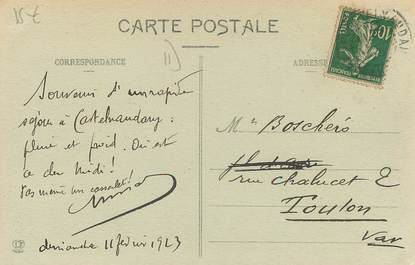 15€
CARTE POSTALE
CORRESPONDANCE
ADRESSE
Souvenir d'un rapide
séjour à Castelnaudary :
pluie et froid. Où est
ce du Midi !
Pas même un cassoulet !
dimanche 11 février 1923
Boscherò
rue Chalucet 2
Toulon
Var